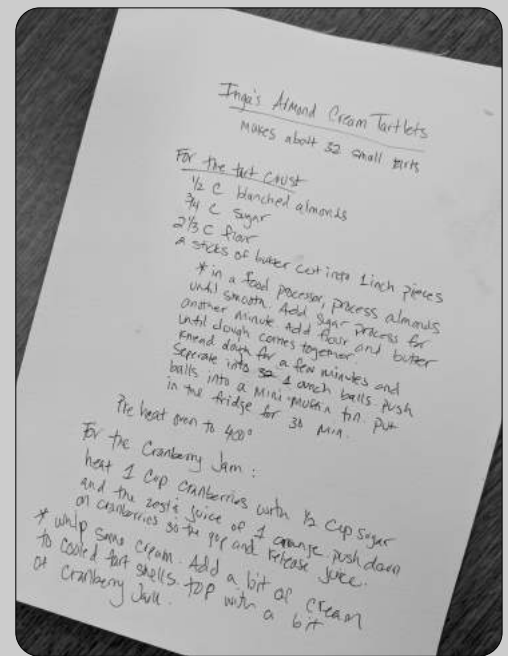 Inga's Almond Cream Tartlets
Makes about 32 small tarts
For the tart crust
1/2 C blanched almonds
3/4 C sugar
2 1/3 C flour
2 sticks of butter cut into 1 inch pieces
* in a food processor, process almonds
until smooth. Add sugar process for
another minute. Add flour and butter
until dough comes together.
Knead dough for a few minutes and
Seperate into 1 ounch balls. Push
balls into a Mini-Muffin tin. Put
in the fridge for 30 min.
Pre heat oven to 400°
For the Cranberry Jam:
heat 1 Cup cranberries with 1/2 cup sugar
and the zest & juice of 1 orange. push down
on cranberries so the pop and release juice.
* Whip some cream. Add a bit of cream
to cooled tart shells. top with a bit
of Cranberry Jam.